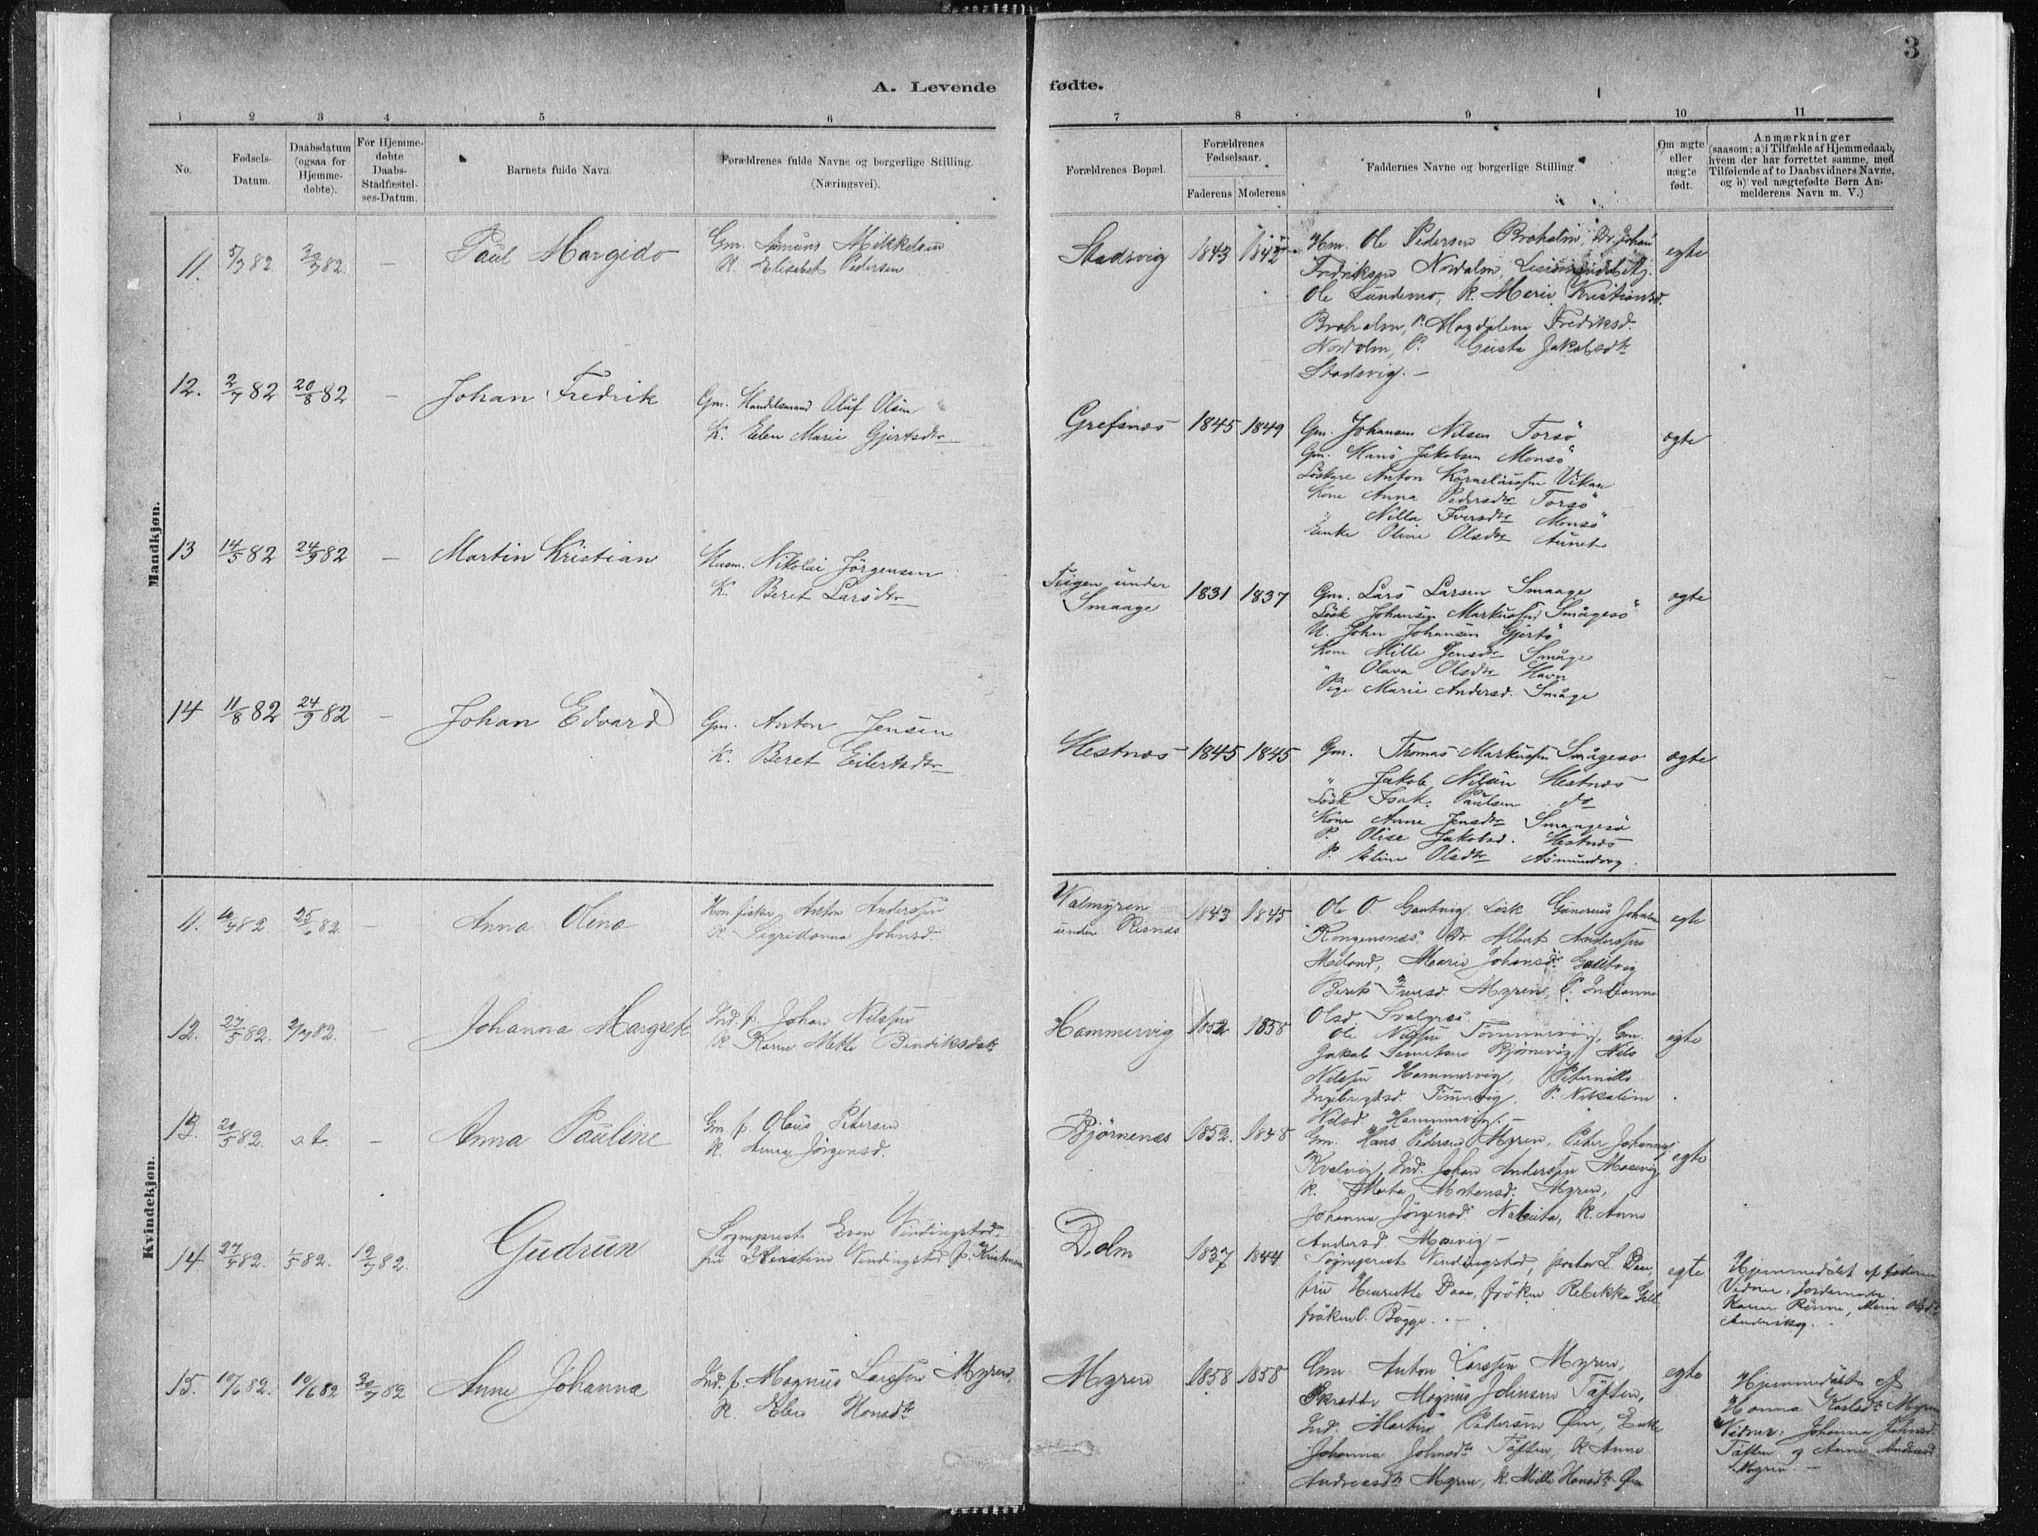 3
A. Levende fødte.
1 2 3 4 5 6 7 8 9 10 11
No.
Fødsels-Datum.
Daabsdatum (ogsaa for Hjemmedøbte).
For Hjemmedøbte Daabs-Stadfæstelses-Datum.
Barnets fulde Navn.
Forældrenes fulde Navne og borgerlige Stilling. (Næringsvei).
Forældrenes Bopæl.
Forældrenes Fødselsaar.
Faderens Moderens
Faddernes Navne og borgerlige Stilling.
Om ægte eller uægte født.
Anmærkninger
(saasom: a) i Tilfælde af Hjemmedaab,
hvem der har forrettet samme, med
Tilføiende af to Daabsvidners Navne,
og b) ved uægtefødte Børn Anmelderens Navn m. V.)
Mandkjøn.
11. 5/7 82 30/7 82 – Paul Margido
Gm. Mikkelsen
K. Elisabet Pedersen
Stadsvig 1843 1842
Hm. Ole Pedersen Broholm, Dr. Johan
Fredriksen Nordolm,
Ole Sundemo, K. Marie Kristiansd.
Broholm, P. Magdalene Frediksd.
Nordolm, P. Jakobsdtr
Stadsvig. –
egte
12. 2/7 82 20/8 82 – Johan Fredrik
Gm. Handelsmand Oluf Olsen
K. Elen Marie Gjertsdtr
Grefsnæs 1845 1849
Gm. Johansen Nilsen Torsö
Gm. Hans Jakobsen Monsö
Anton Korneliussen Vikan
Kone Anna Pedersdtr Torsö
" Nilla Iversdtr Monsö
Enke Oline Olsdtr Aunet
ægte
13 14/5 82 24/9 82 – Martin Kristian
Husm. Nikolai Jörgensen
K. Beret Larsdtr
under Smaage 1831 1837
Gm. Lars Larsen Smaage
Lösk Johansen Markussen Smågesö
U. John Johansen Gjertö
Kone Mille Jensdtr Småge
" Olava Olsdtr Havn
Pige Marie Andersd. Småge
ægte
14 11/8 82 24/9 82 – Johan Edvard
Gm. Anton Jensen
K. Beret Eilertsdtr
Hestnæs 1845 1845
Gm. Thomas Markussen Smågesö
" Jakob Nilsen Hestnæs
Lösk Isak Paulsen do
Kone Anne Jensdtr Smaagesö
P. Olise Jakobsd. Hestnæs
P. Eline Olsdtr Asmundvag.
ægte
Kvindekjøn.
11. 82 25/6 82 – Anna Olena
Hm fisker Anton Anderssen
K. Sigridanna Johnsd.
Valmyren under Risnæs 1843 1845
Ole O. Gautvig, Lösk Gunerius Johnsen
Kongensnæs, Dr Albert Anderssen
Meland, Maarie Johansd. Gautvig
Berit Iversd. Myren, P.
Olsd
egte
12. 27/5 82. 2/7 82 – Johanna Margrete
Ind. f. Johan Nilssen
K Karen Mette Bendiksdatr
Hammervig 1852 1858
Ole Nilssen Tömmervig, Gm.
Jakob Bjørnevig, Nils
Nilssen Hammervig, Peternille
Ingebrigtsd. P. Nikoline
Nilsd Hammervig. –
egte
13. 20/5 82. – Anna Pauline
Gm f. Olaus Petersen
K. Anna Jörgensd.
Bjørnenæs 1852. 1848
Gm. Hans Pedersen Myren, Peter Johannes
Kvalvig, Ind. Johan Anderssen Masevig
K. Marta Mortensd. Myren,
Johanna Jörgensd. K. Anne
Andersd. Masevig –
egte
14 27/4 82. 82. 12/7 82. Gudrun
Sogneprest Even Vindingstad
fru Kirstine Vindingstad f. Kristensen
Dolm 1837 1844
Sogneprest Vindingstad, L. Daa
fru Henriette Daae, fröken Rebekka
fröken Bugge. –
egte
Hjemmedöbt af faderen
Vidner: Jordemoder
Karen Rönne,
15. 10/6 82. 10/6 82 30/7 82 Anne Johanna
Ind. f. Magnus Larssen Myren,
K. Elen Hansdtr
Myren 1858 1858
Gm. Anton Larssen Myren,
Skrædder Magnus Johnsen Täften,
Ind. Martin Pedersen Öen, Enke
Johanna Johnsdtr Täften, K Anne
Andreasdtr Myren, K. Mille Hansdtr Öen
egte
Hjemmedöbt af
Hanna Myren
Vidner: Johanna Johnsd.
Täften og Anne Andreasd
Myren –